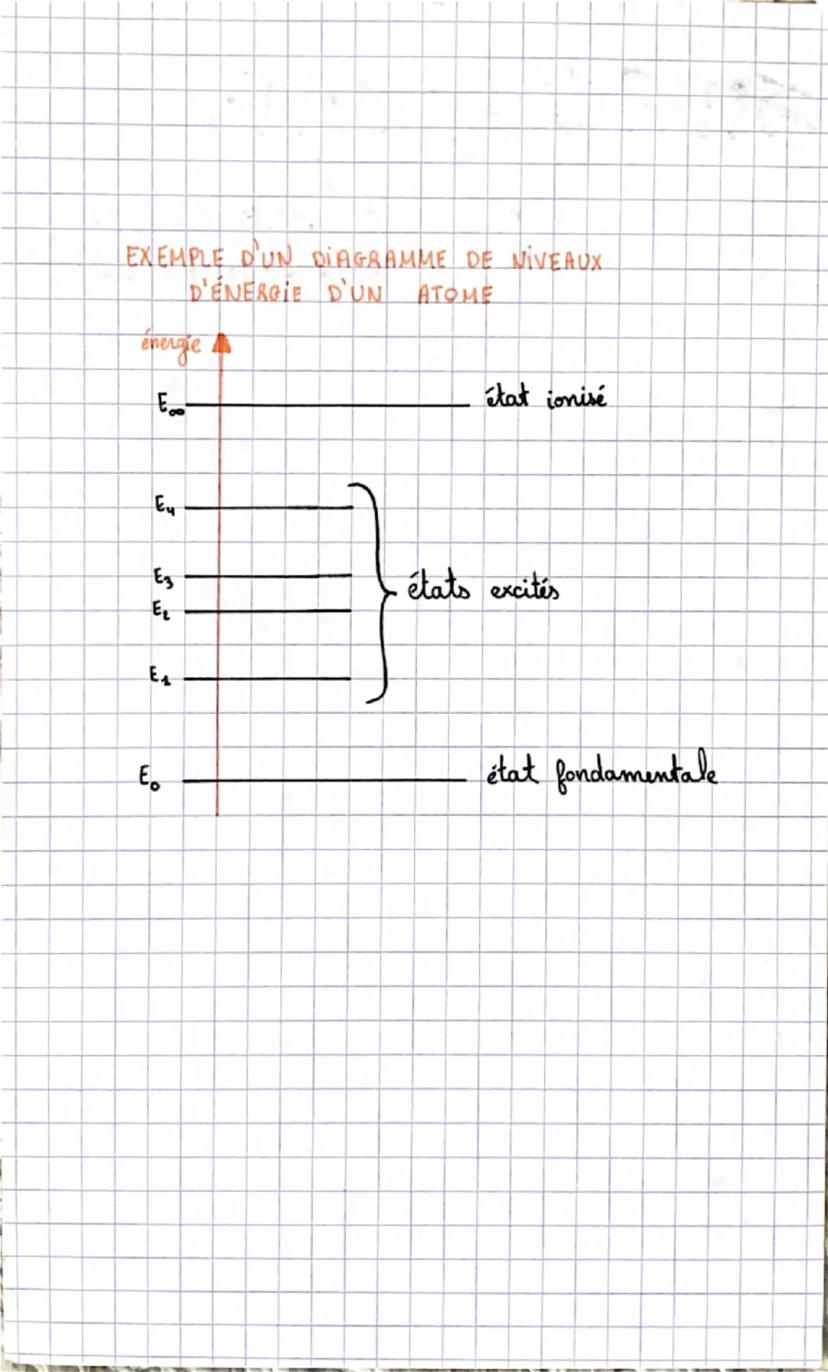 EXEMPLE D'UN DIAGRAMME DE NIVEAUX
D'ÉNERGIE D'UN ATOME
énergie
E∞ état ionisé
E₄
E₃
états excités
E₂
E₁
E₀ état fondamentale